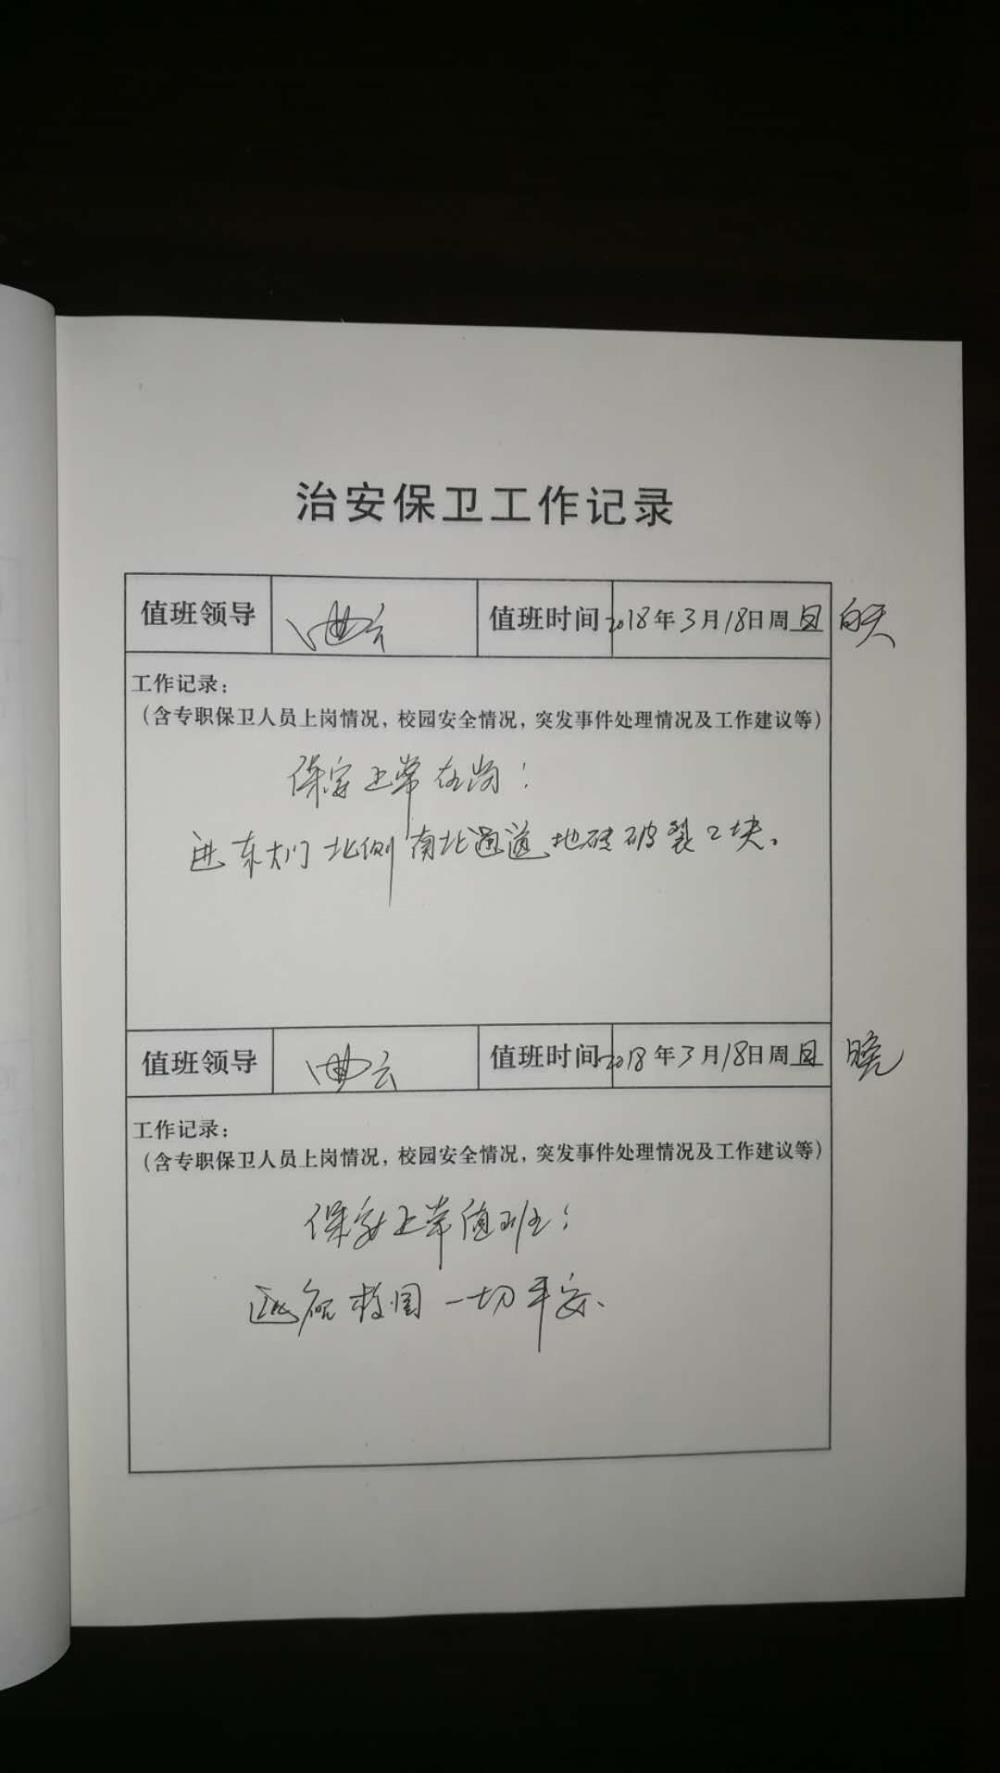 治安保卫工作记录
值班领导 曲云 值班时间 2018年3月18日周日 白天
工作记录：
（含专职保卫人员上岗情况，校园安全情况，突发事件处理情况及工作建议等）
保安正常在岗；
进东大门北侧南北通道地砖破裂2块。
值班领导 曲云 值班时间 2018年3月18日周日 晚
工作记录：
（含专职保卫人员上岗情况，校园安全情况，突发事件处理情况及工作建议等）
保安正常值班；
巡视校园一切平安、